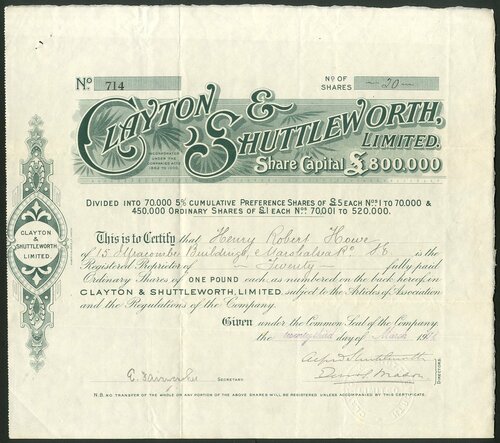 No. 714
No OF SHARES 20
CLAYTON & SHUTTLEWORTH,
LIMITED.
INCORPORATED UNDER THE COMPANIES ACTS 1862 TO 1900.
Share Capital £800.000
DIVIDED INTO 70.000 5% CUMULATIVE PREFERENCE SHARES OF £5 EACH Nos 1 TO 70,000 &
450.000 ORDINARY SHARES OF £1 EACH Nos 70,001 TO 520.000.
CLAYTON & SHUTTLEWORTH LIMITED.
This is to Certify that Henry Robert Howe
of 15 Ilfracombe Buildings, Marshalsea Rd. SE is the
Registered Proprietor of Twenty fully paid
Ordinary Shares of ONE POUND each as numbered on the back hereof, in
CLAYTON & SHUTTLEWORTH, LIMITED, subject to the Articles of Association
and the Regulations of the Company.
Given under the Common Seal of the Company
the twenty third day of March 19
Alfred Shuttleworth
SECRETARY.
DIRECTORS.
N.B. NO TRANSFER OF THE WHOLE OR ANY PORTION OF THE ABOVE SHARES WILL BE REGISTERED UNLESS ACCOMPANIED BY THIS CERTIFICATE.